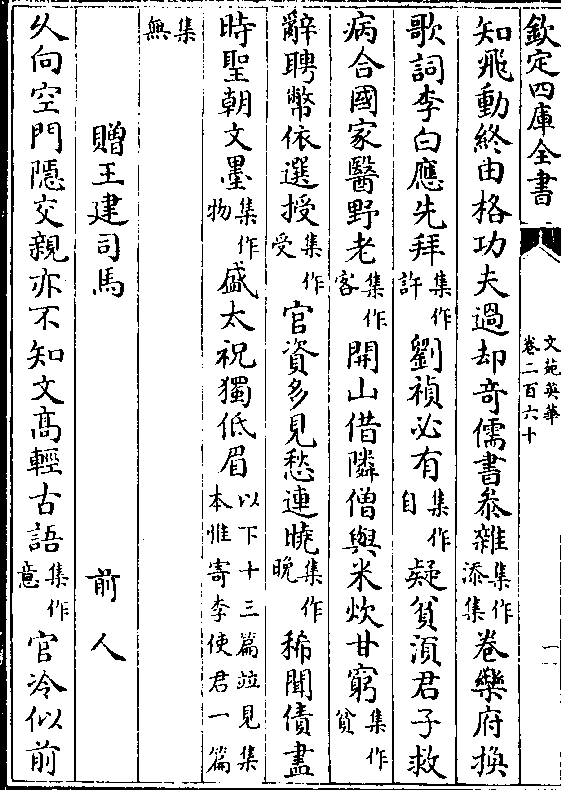 欽定四庫全書
文苑英華
卷二百六十
知飛動終由格功夫過却奇儒書叅雜集作添集卷樂府換
歌詞李白應先拜集作許劉禎必有集作自疑貧須君子救
病合國家醫野老集作客開山借隣僧與米炊甘窮集作貧
辭聘幣依選授集作受官資多見愁連曉集作晚稀聞債盡
時聖朝文墨集作物盛太祝獨低眉以下十三篇竝見集本惟寄李使君一篇
集無
贈王建司馬 前人
久向空門隱交親亦不知文高輕古語集作意官冷似前